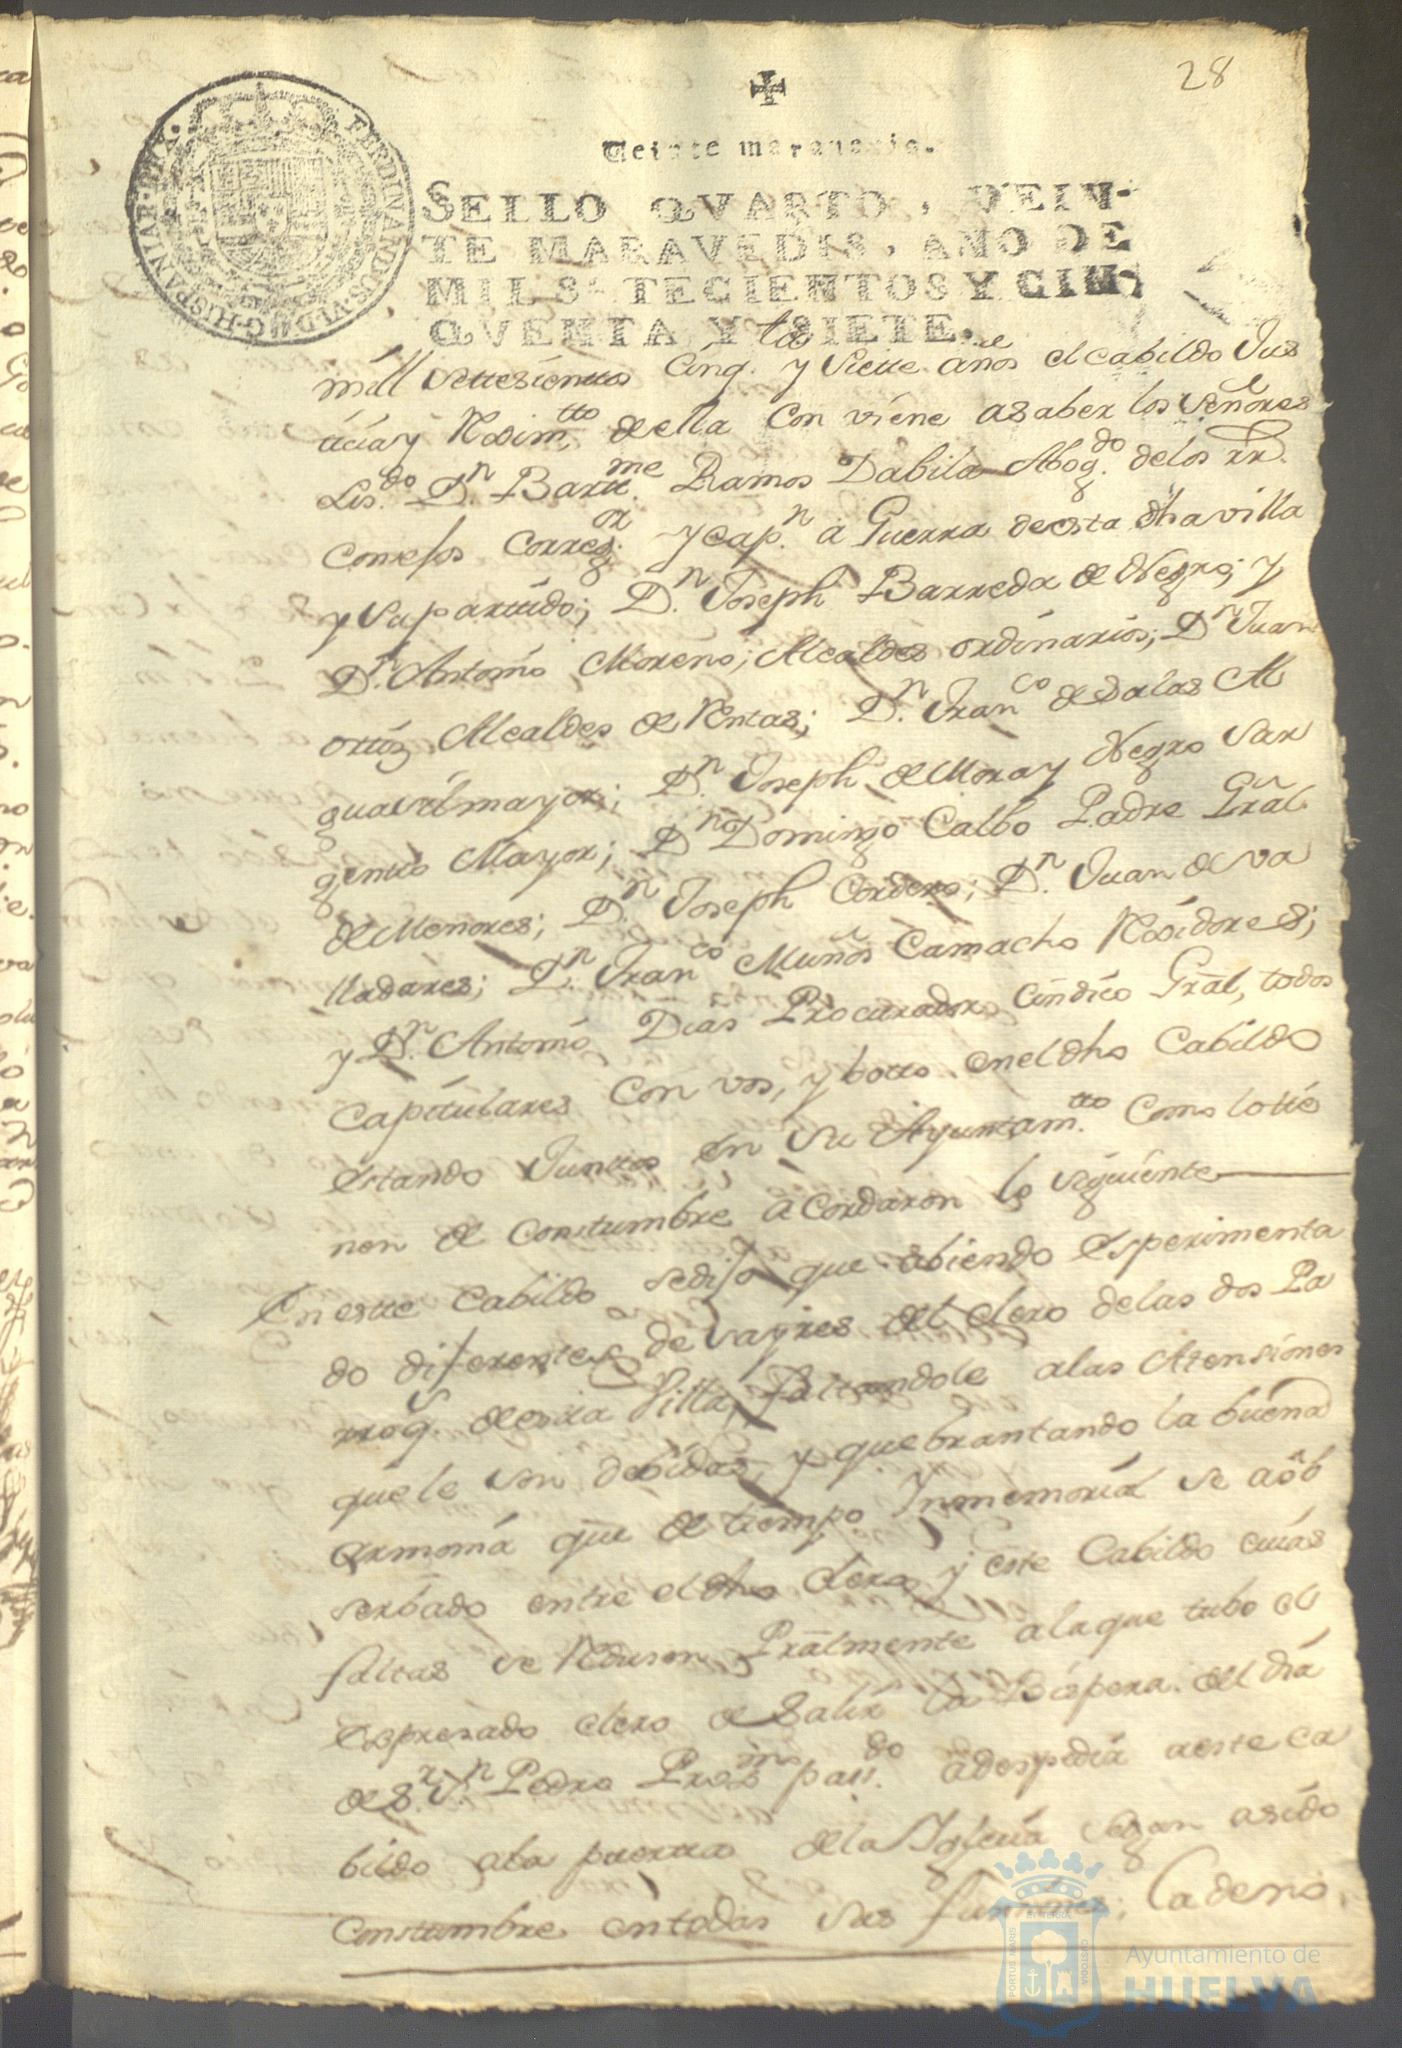 28
Veinte maravedis.
SELLO QVARTO, VEIN-
TE MARAVEDIS, AÑO DE
MIL SETECIENTOS Y CIN-
QVENTA Y SIETE.
FERDINANDUS·VI·D·G·HISPANIAR·REX·
mill settesienttos Cinq.ta y Siette años el cabildo Jus
ticia y Rexim.tto de ella Con viene a saber los señores
Lis.do D.n Bartt.me Ramos Dabila Abog.do de los RR.
Consejos Correg.or y cap.n a Guerra de esta dha villa
y su parttido; D.n Joseph Barreda de Negro; y
D.n Antonio Moreno; Alcaldes ordinarios; D.n Juan
Orttiz Alcaldes de Rentas; D.n Fran.co de Salas Al
guasil mayor; D.n Joseph de Mora y Negro Sar
gentto Mayor; D.n Domingo Calbo Padre Gral
de Menores; D.n Joseph Cordero; D.n Juan de Va
lladares; D.n Fran.co Muños Camacho Rexidores;
y D.n Antonio Dias Procurador Cindico Gral, todos
Capitulares con vos, y botto en el dho Cabildo
estando Junttos en su Ayuntam.tto como lo tie
nen de Constumbre acordaron lo siguiente
En este Cabildo se dijo que abiendo esperimenta
do diferentes de sayres del clero de las dos Pa
rroq.s de esta Villa, faltandole a las Atensiones
que le son debidas, y quebrantando la buena
armonia que de tiempo Inmemorial se a ob
serbado entre el dho clero y este Cabildo cuias
faltas se Redusen Pralmente a la que tubo el
espresado clero de Salir la Bispera del dia
de S.r S.n Pedro Prox.mo pas.do a despedir a este ca
bildo a la puertta de la Yglesia segun a sido
Constumbre en todas sus funsiones; La de no
Ayuntamiento de
HUELVA
PORTUS MARIS
CUSTODIA